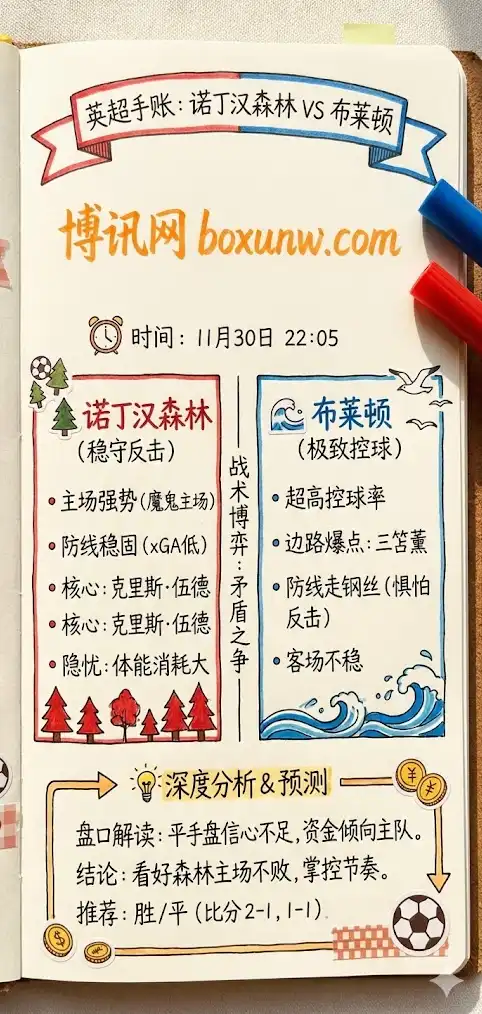 英超手账：诺丁汉森林 VS 布莱顿
博讯网 boxunw.com
时间：11月30日 22:05
诺丁汉森林
(稳守反击)
主场强势(魔鬼主场)
防线稳固(xGA低)
核心：克里斯·伍德
核心：克里斯·伍德
隐忧：体能消耗大
战术博弈：矛盾之争
布莱顿
(极致控球)
超高控球率
边路爆点：三笘薰
防线走钢丝(惧怕
反击)
客场不稳
深度分析&预测
盘口解读：平手盘信心不足,资金倾向主队。
结论：看好森林主场不败,掌控节奏。
推荐：胜/平 (比分2-1, 1-1)